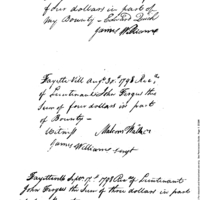 four dollars in part of
my Bounty —
James Williams
Fayetteville Augt. 30th 1798 Recd.
of Lieutenant John Fergus the
Sum of four dollars in part
of Bounty —
Witness
James Williams Sergt
Fayetteville Sepr. 17th 1798 Recd of Lieutenant
John Fergus the Sum of three dollars in part